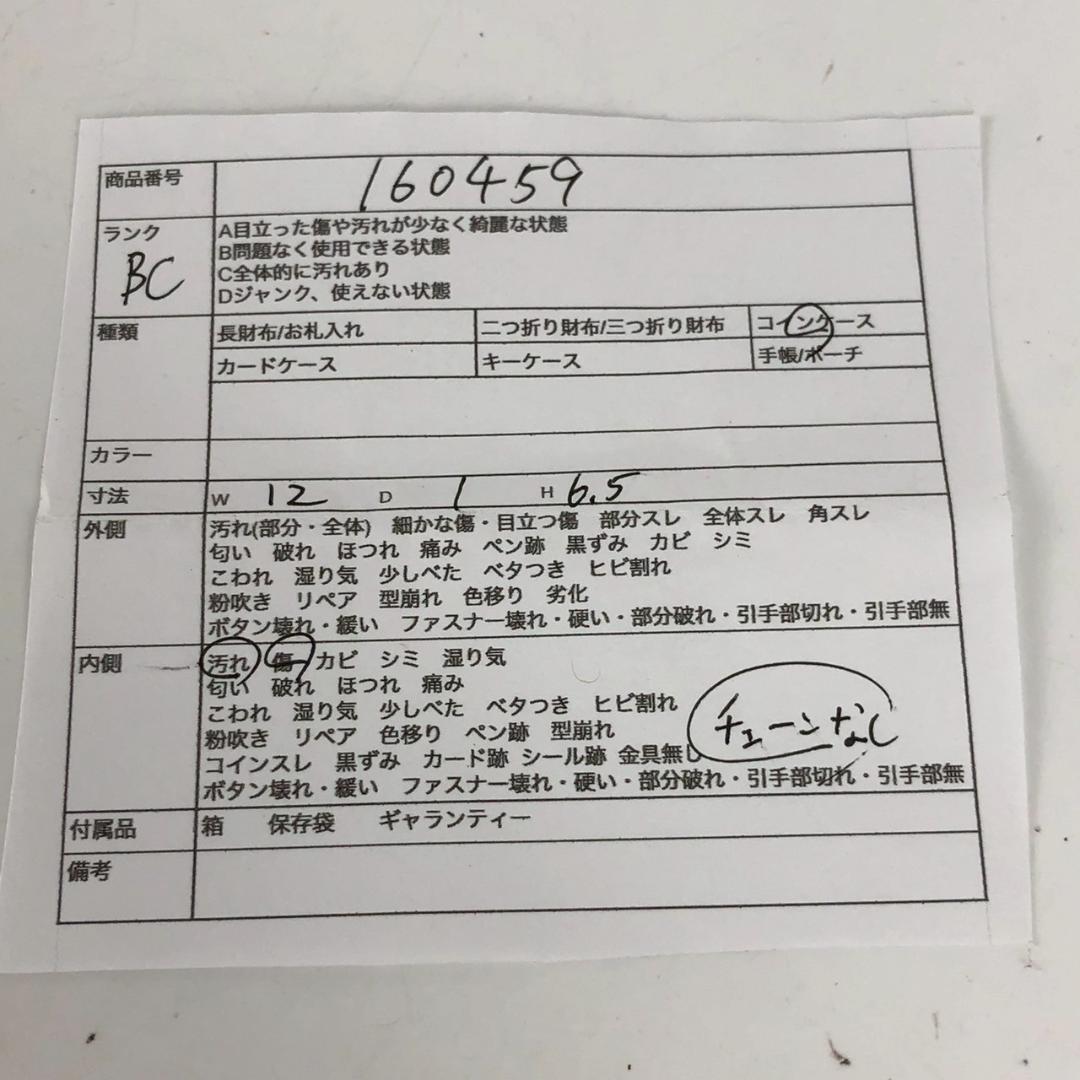 商品番号 160459
ランク BC
A目立った傷や汚れが少なく綺麗な状態
B問題なく使用できる状態
C全体的に汚れあり
Dジャンク、使えない状態
種類 長財布/お札入れ 二つ折り財布/三つ折り財布 コインケース
カードケース キーケース 手帳/ポーチ
カラー
寸法 W 12 D 1 H 6.5
外側 汚れ(部分・全体) 細かな傷・目立つ傷 部分スレ 全体スレ 角スレ
匂い 破れ ほつれ 痛み ペン跡 黒ずみ カビ シミ
こわれ 湿り気 少しべた ベタつき ヒビ割れ
粉吹き リペア 型崩れ 色移り 劣化
ボタン壊れ・緩い ファスナー壊れ・硬い・部分破れ・引手部切れ・引手部無
内側 汚れ 傷 カビ シミ 湿り気
匂い 破れ ほつれ 痛み
こわれ 湿り気 少しべた ベタつき ヒビ割れ
粉吹き リペア 色移り ペン跡 型崩れ
チェーンなし
コインスレ 黒ずみ カード跡 シール跡 金具無し
ボタン壊れ・緩い ファスナー壊れ・硬い・部分破れ・引手部切れ・引手部無
付属品 箱 保存袋 ギャランティー
備考